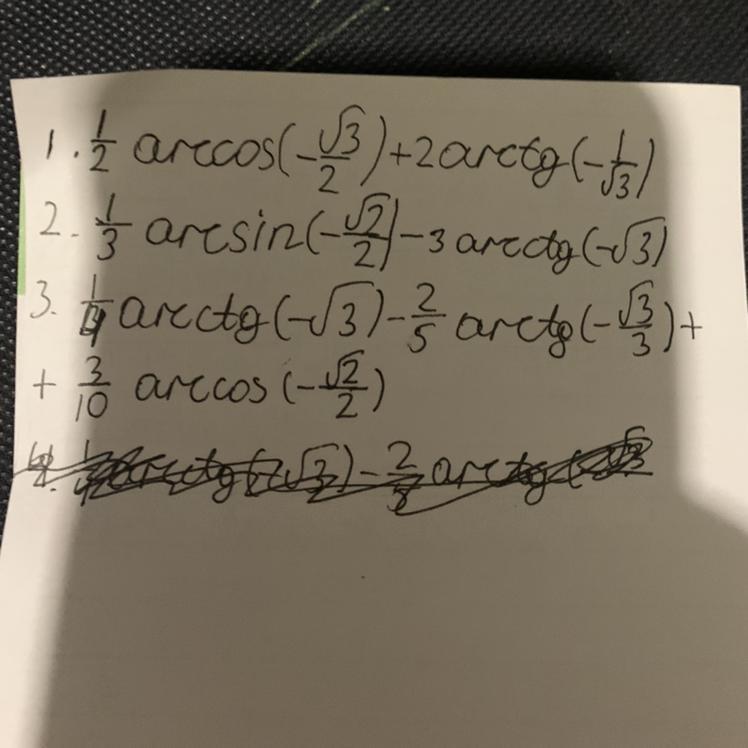 1. 1/2 arccos(-√3/2)+2arctg(-1/√3)
2. 1/3 arcsin(-√2/2)-3 arcctg(-√3)
3. arcctg(-√3)-2/5 arctg(-√3/3)+
+ 3/10 arccos(-√2/2)